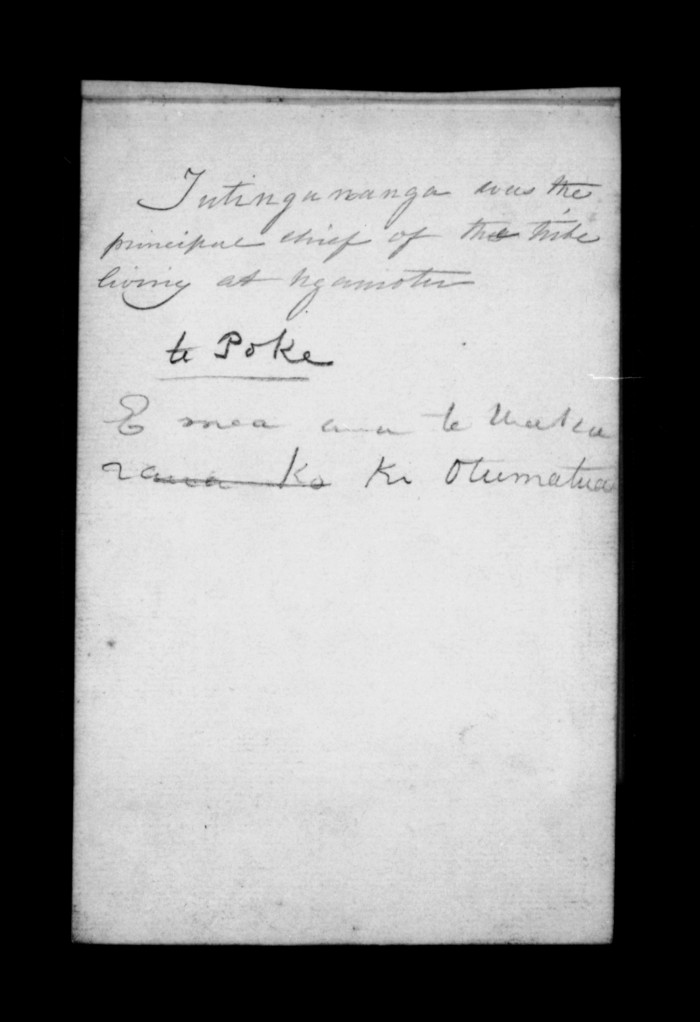 Tutingananga was the
principal chief of the tribe
living at Ngamotu
te Poke
E mea ana te
raua Ko Ki Otumatua